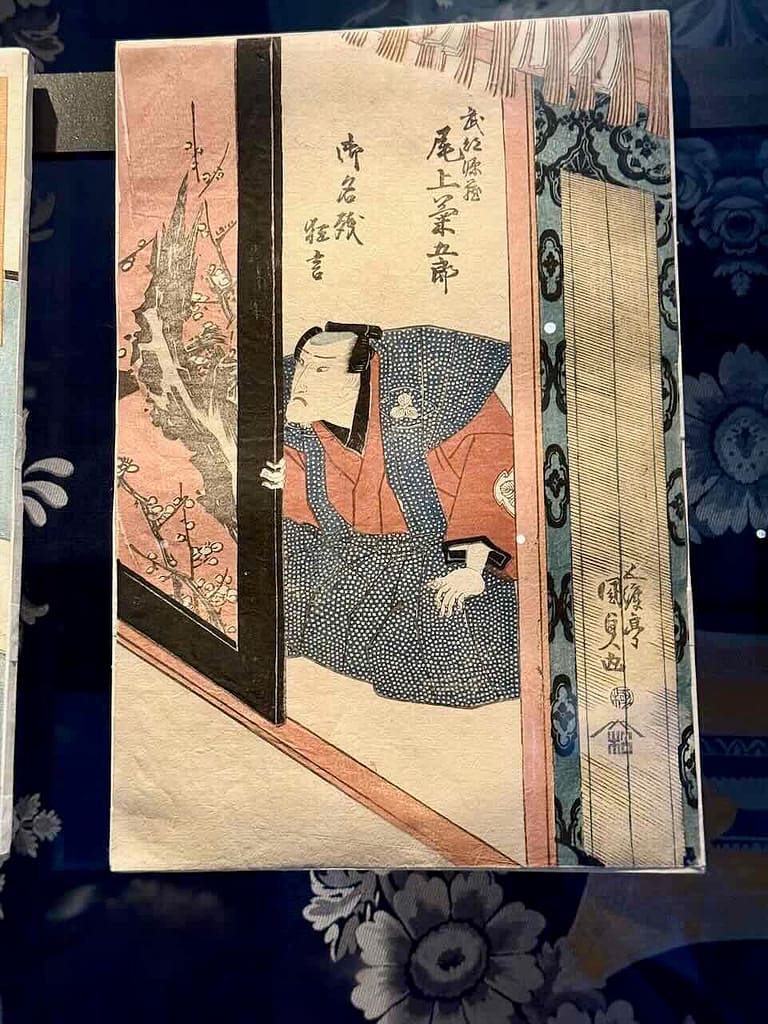 武部源蔵
尾上菊五郎
御名残
狂言
五渡亭
國貞画
極